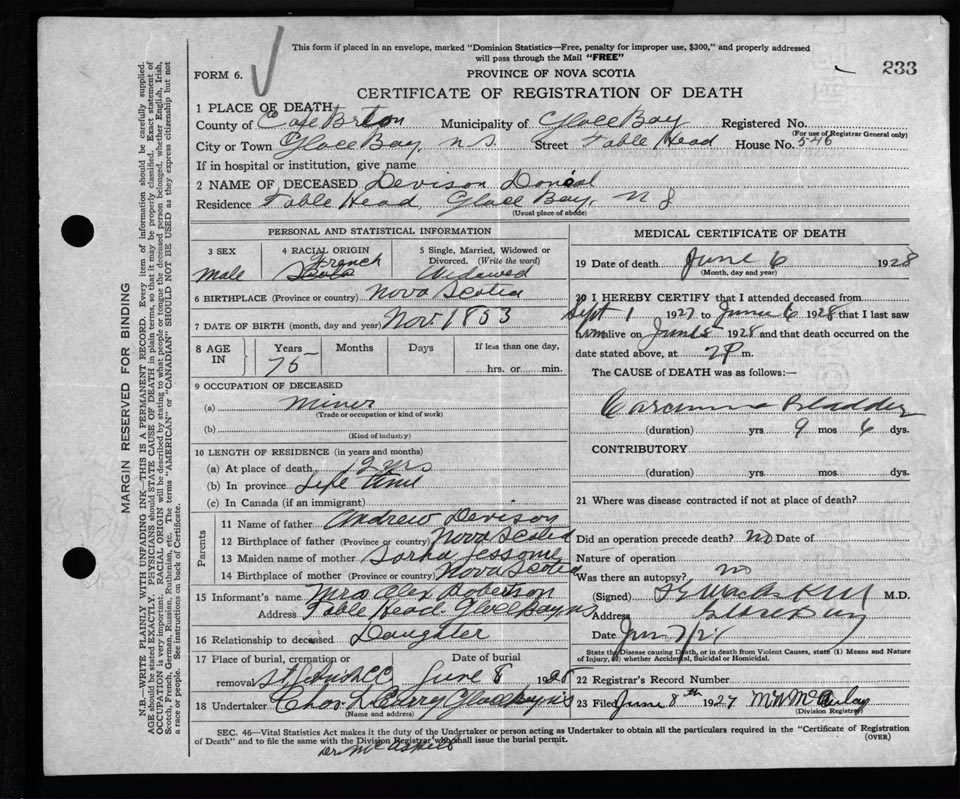 This form if placed in an envelope, marked "Dominion Statistics—Free, penalty for improper use, $300," and properly addressed
will pass through the Mail "FREE"
FORM 6.
PROVINCE OF NOVA SCOTIA
233
CERTIFICATE OF REGISTRATION OF DEATH
1 PLACE OF DEATH
County of Cape Breton Municipality of Glace Bay Registered No.
(For use of Registrar General only)
City or Town Glace Bay, N.S. Street Table Head House No. 546
If in hospital or institution, give name
2 NAME OF DECEASED Devison
Residence Table Head, Glace Bay, N S
(Usual place of abode)
PERSONAL AND STATISTICAL INFORMATION
3 SEX
Male
4 RACIAL ORIGIN
French
5 Single, Married, Widowed or
Divorced. (Write the word)
Widowed
6 BIRTHPLACE (Province or country) Nova Scotia
7 DATE OF BIRTH (month, day and year) Nov. 1853
8 AGE IN
Years Months Days If less than one day,
75 hrs. or min.
9 OCCUPATION OF DECEASED
(a) Miner
(Trade or occupation or kind of work)
(b)
(Kind of industry)
10 LENGTH OF RESIDENCE (in years and months)
(a) At place of death 12 yrs
(b) In province Life time
(c) In Canada (if an immigrant)
Parents
11 Name of father Andrew Devison
12 Birthplace of father (Province or country) Nova Scotia
13 Maiden name of mother Jessome
14 Birthplace of mother (Province or country) Nova Scotia
15 Informant's name Mrs Alex Robertson
Address Table Head Glace Bay NS
16 Relationship to deceased Daughter
17 Place of burial, cremation or removal
Date of burial
June 8 1928
18 Undertaker Chas Glace Bay NS
(Name and address)
MEDICAL CERTIFICATE OF DEATH
19 Date of death June 6 1928
(Month, day and year)
20 I HEREBY CERTIFY that I attended deceased from
Sept 1 1927 to June 6 1928 that I last saw
him alive on June 5 1928 and that death occurred on the
date stated above, at 2 P m.
The CAUSE of DEATH was as follows:—
Carcinoma Bladder
(duration) yrs. 9 mos 6 dys.
CONTRIBUTORY
(duration) yrs. mos. dys.
21 Where was disease contracted if not at place of death?
Did an operation precede death? No Date of
Nature of operation
Was there an autopsy? no
(Signed) M.D.
Address Glace Bay
Date
State the Disease causing Death, or in death from Violent Causes, state (1) Means and Nature
of Injury, (2) whether Accidental, Suicidal or Homicidal.
22 Registrar's Record Number
23 Filed June 8th 1927
(Division Registrar)
SEC. 46—Vital Statistics Act makes it the duty of the Undertaker or person acting as Undertaker to obtain all the particulars required in the "Certificate of Registration
of Death" and to file the same with the Division Registrar who shall issue the burial permit. (OVER)
MARGIN RESERVED FOR BINDING
N.B.—WRITE PLAINLY WITH UNFADING INK—THIS IS A PERMANENT RECORD. Every item of information should be carefully supplied.
AGE should be stated EXACTLY. PHYSICIANS should STATE CAUSE OF DEATH in plain terms, so that it may be properly classified. Exact statement of
OCCUPATION is very important. RACIAL ORIGIN will be described by stating to what people or tongue the deceased person belonged, whether English, Irish,
Scotch, French, German, Russian, Ruthenian, etc. The terms "AMERICAN" or "CANADIAN" SHOULD NOT BE USED as they express citizenship but not
a race or people. See instructions on back of Certificate.